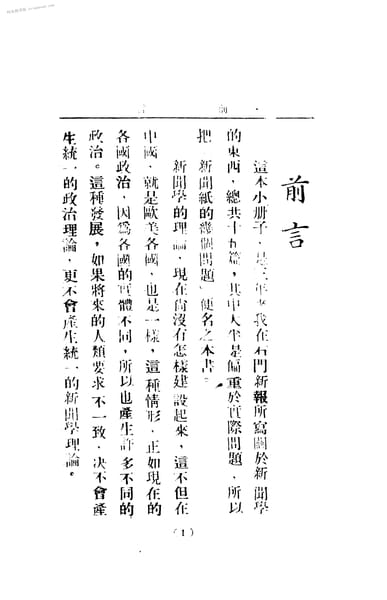 前言
這本小册子，是三年來我在石門新報所寫關於新聞學
的東西，總共十五篇，其中大半是偏重於實際問題，所以
把「新聞紙的幾個問題」便名之本書。
新聞學的理論，現在尚沒有怎樣建設起來，這不但在
中國，就是歐美各國，也是一樣，這種情形，正如現在的
各國政治，因爲各國的實體不同，所以也產生許多不同的
政治。這種發展，如果將來的人類要求不一致，决不會產
生統一的政治理論，更不會產生統一的新聞學理論。
(1)